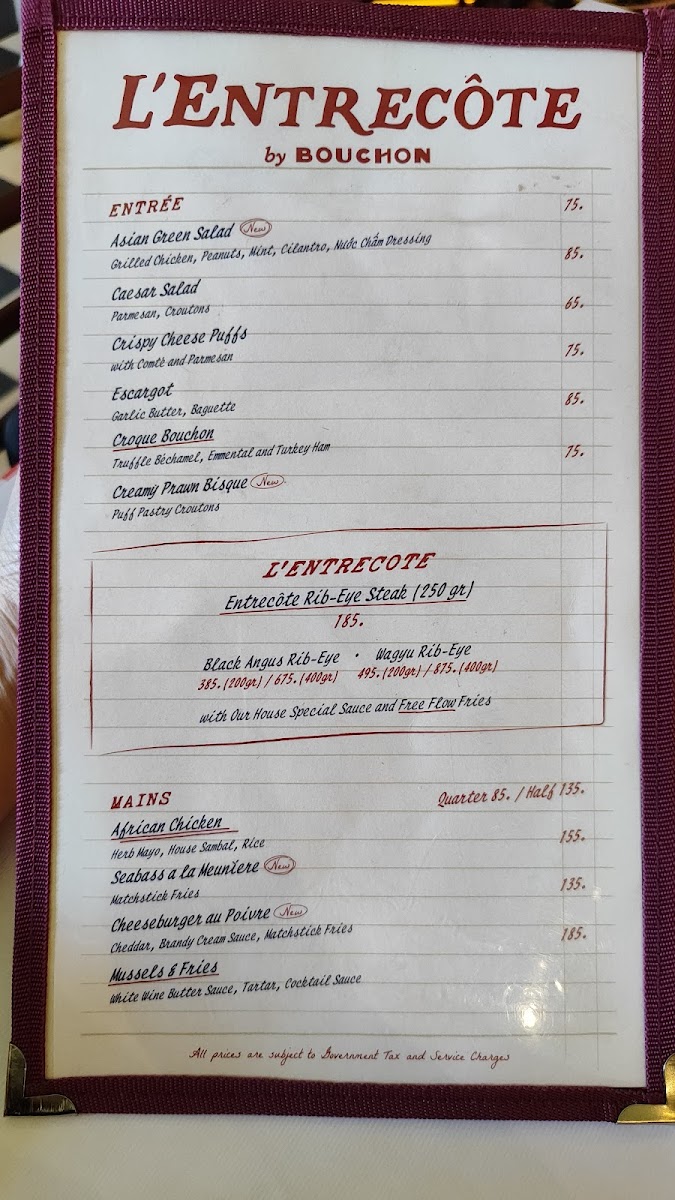 L'ENTRECÔTE
by BOUCHON
ENTRÉE
Asian Green Salad New 75.
Grilled Chicken, Peanuts, Mint, Cilantro, Nước Chấm Dressing
Caesar Salad 85.
Parmesan, Croutons
Crispy Cheese Puffs 65.
with Comtè and Parmesan
Escargot 75.
Garlic Butter, Baguette
Croque Bouchon 85.
Truffle Béchamel, Emmental and Turkey Ham
Creamy Prawn Bisque New 75.
Puff Pastry Croutons
L'ENTRECOTE
Entrecôte Rib-Eye Steak (250 gr)
185.
Black Angus Rib-Eye · Wagyu Rib-Eye
385.(200gr) / 675.(400gr) 495.(200gr) / 875.(400gr)
with Our House Special Sauce and Free Flow Fries
MAINS
African Chicken Quarter 85. / Half 135.
Herb Mayo, House Sambal, Rice
Seabass a la Meuniere New 155.
Matchstick Fries
Cheeseburger au Poivre New 135.
Cheddar, Brandy Cream Sauce, Matchstick Fries
Mussels & Fries 185.
White Wine Butter Sauce, Tartar, Cocktail Sauce
All prices are subject to Government Tax and Service Charges